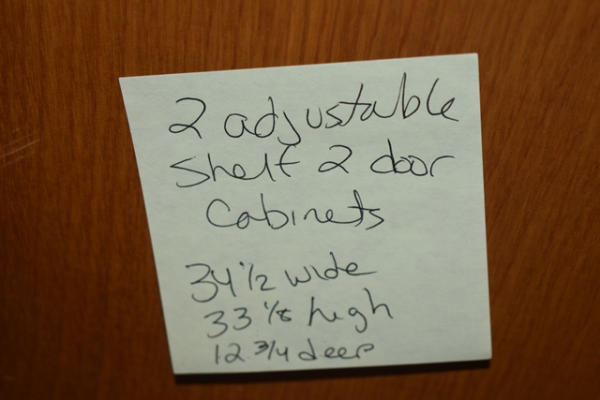 2 adjustable
Shelf 2 door
Cabinets
34 1/2 wide
33 1/8 high
12 3/4 deep